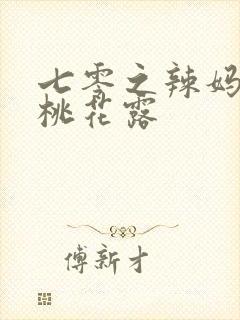 七零之辣妈
桃花露
傅新才